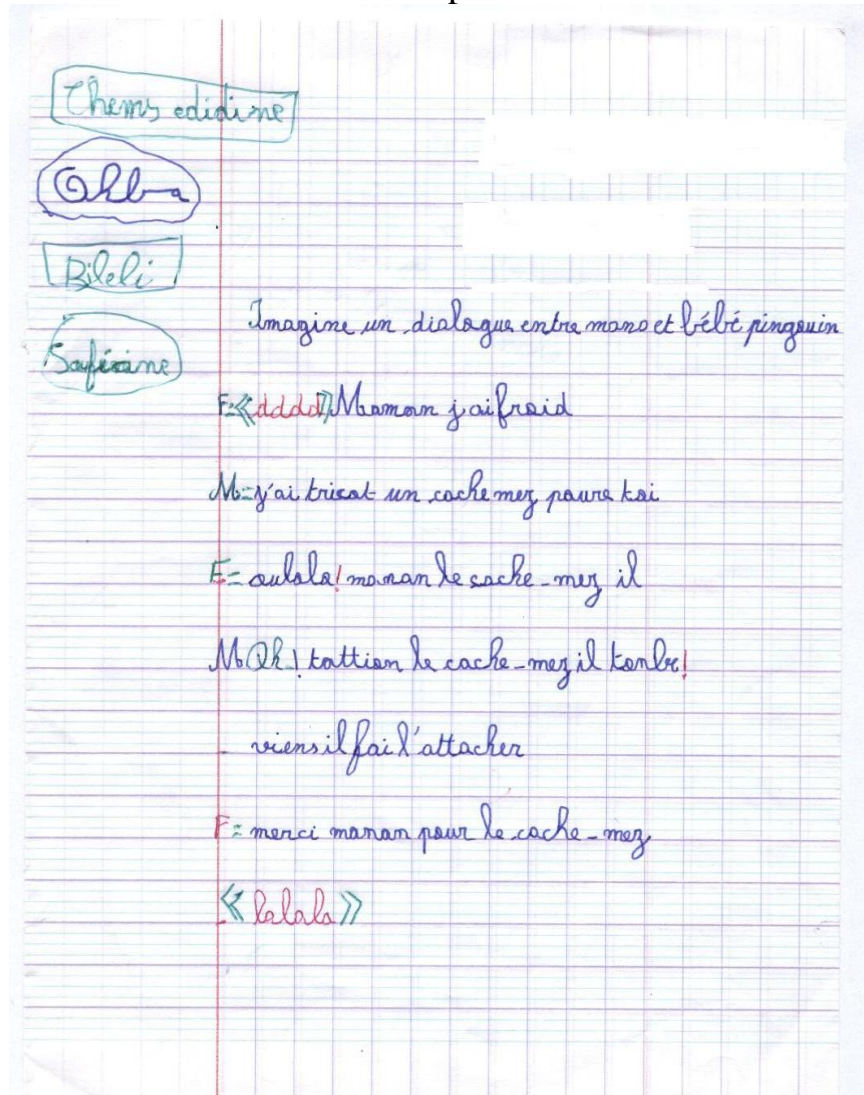 Chems edidine
Okba
Bileli
Sofiane
Imagine un dialogue entre mano et bébé pingouin
F=«dddd» Maman j'ai froid
M=j'ai tricot un cache mez paure toi
F= oulala! manan le cache-mez il
M Oh! tattion le cache-mez il tonbe!
- viens il fai l'attacher
F= merci manan pour le cache-mez
«lalala»